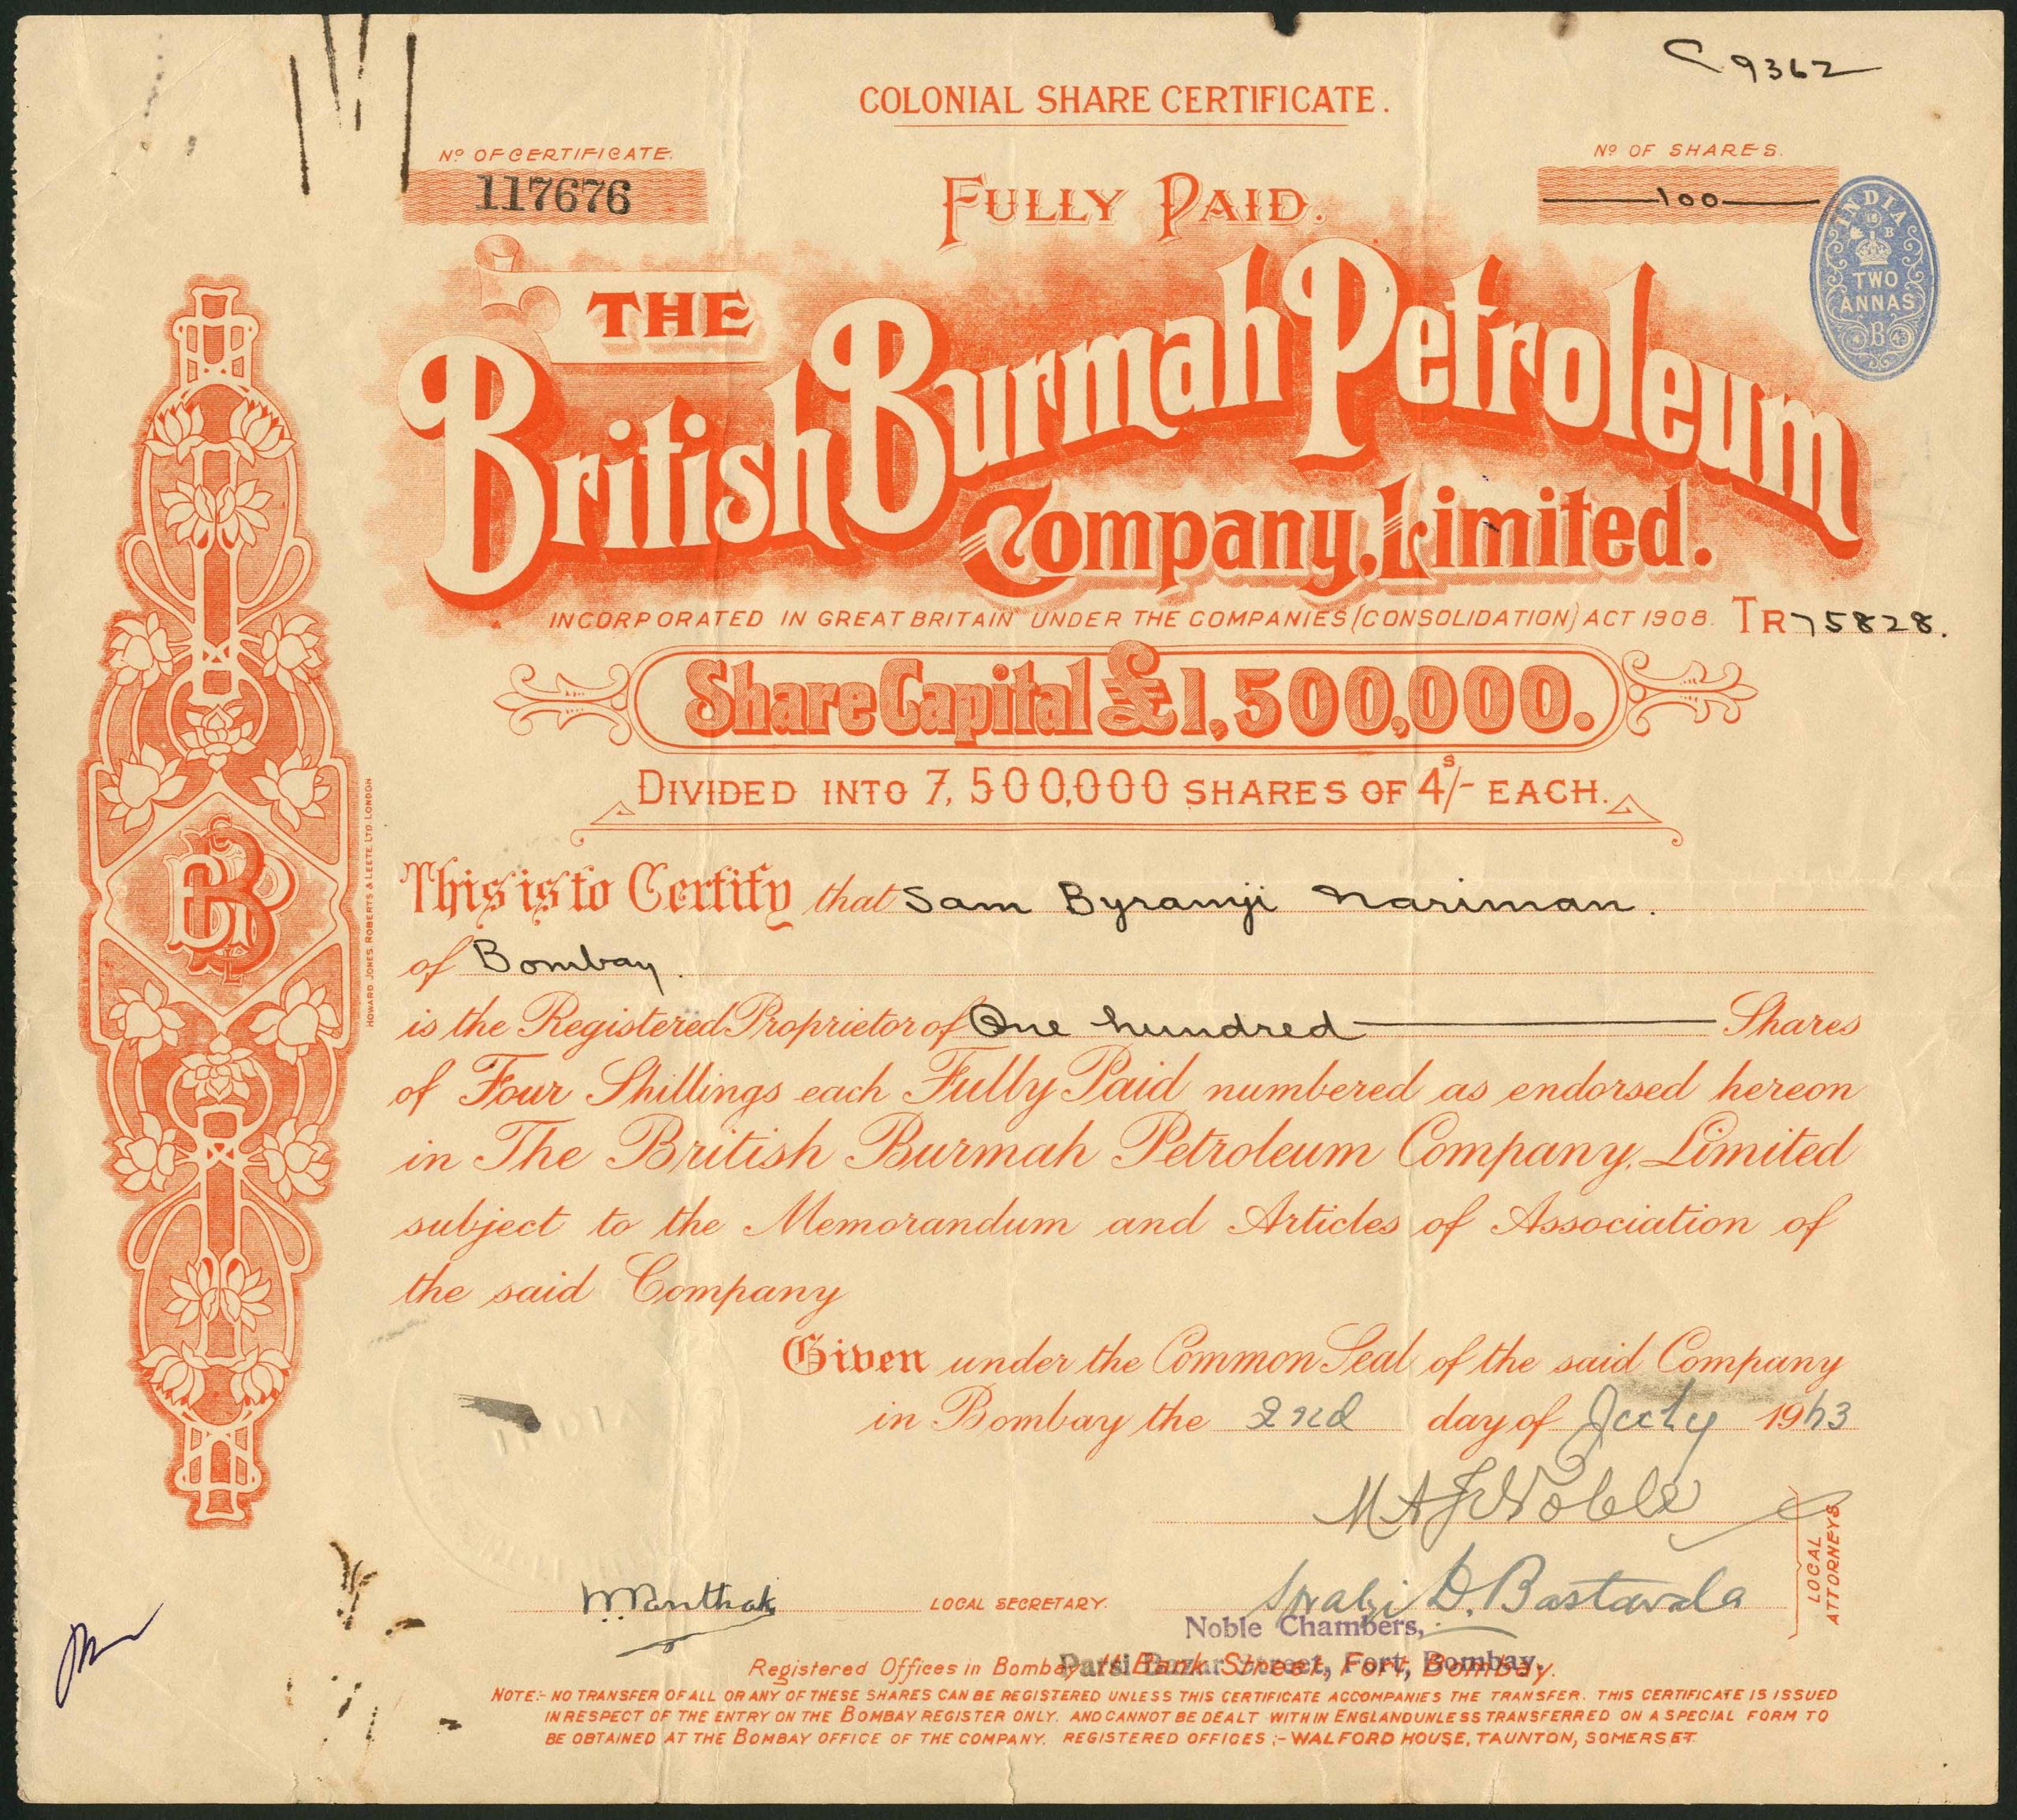 C 9362
COLONIAL SHARE CERTIFICATE.
Nº OF CERTIFICATE.
117676
Nº OF SHARES.
100
FULLY PAID.
INDIA
TWO
ANNAS
B
THE
British Burmah Petroleum
Company, Limited.
INCORPORATED IN GREAT BRITAIN UNDER THE COMPANIES (CONSOLIDATION) ACT 1908. TR 75828.
Share Capital £1,500,000.
DIVIDED INTO 7,500,000 SHARES OF 4s/- EACH.
HOWARD JONES, ROBERTS & LEETE, LTD LONDON
This is to Certify that Sam Byramji Nariman.
of Bombay.
is the Registered Proprietor of One hundred Shares
of Four Shillings each Fully Paid numbered as endorsed hereon
in The British Burmah Petroleum Company, Limited
subject to the Memorandum and Articles of Association of
the said Company
Given under the Common Seal of the said Company
in Bombay the 2nd day of July 19
Noble
LOCAL ATTORNEYS
LOCAL SECRETARY.
D. Bastavala
Noble Chambers,
Parsi Bazar Street, Fort, Bombay.
Registered Offices in Bombay Bank Street, Fort, Bombay.
NOTE:- NO TRANSFER OF ALL OR ANY OF THESE SHARES CAN BE REGISTERED UNLESS THIS CERTIFICATE ACCOMPANIES THE TRANSFER. THIS CERTIFICATE IS ISSUED
IN RESPECT OF THE ENTRY ON THE BOMBAY REGISTER ONLY. AND CANNOT BE DEALT WITH IN ENGLAND UNLESS TRANSFERRED ON A SPECIAL FORM TO
BE OBTAINED AT THE BOMBAY OFFICE OF THE COMPANY. REGISTERED OFFICES :- WALFORD HOUSE, TAUNTON, SOMERSET